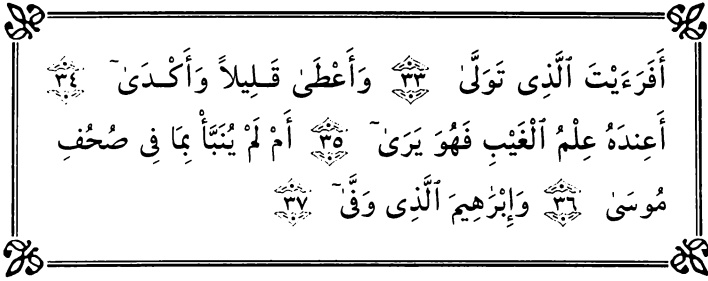 أَفَرَءَيْتَ ٱلَّذِى تَوَلَّىٰ ٣٣ وَأَعْطَىٰ قَلِيلاً وَأَكْدَىٰٓ ٣٤
أَعِندَهُ عِلْمُ ٱلْغَيْبِ فَهُوَ يَرَىٰٓ ٣٥ أَمْ لَمْ يُنَبَّأْ بِمَا فِى صُحُفِ
مُوسَىٰ ٣٦ وَإِبْرَٰهِيمَ ٱلَّذِى وَفَّىٰٓ ٣٧